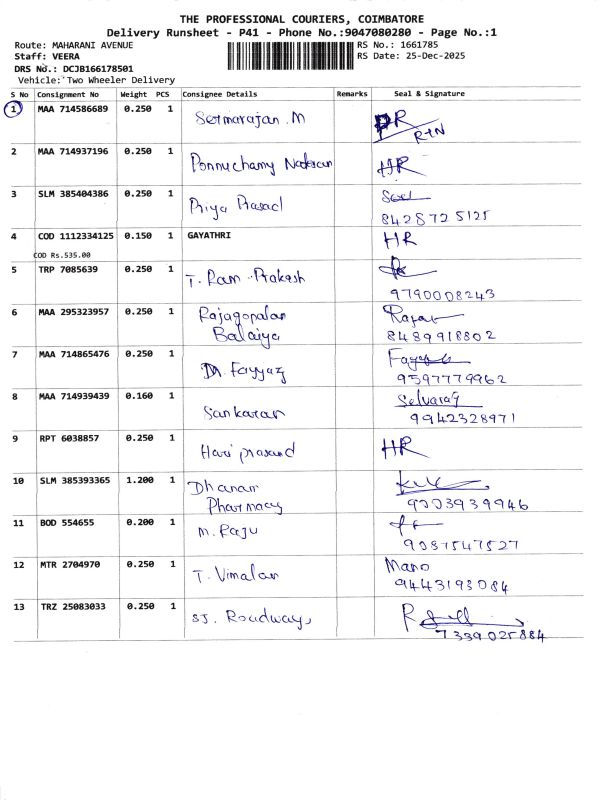 THE PROFESSIONAL COURIERS, COIMBATORE
Delivery Runsheet - P41 - Phone No.:9047080280 - Page No.:1
Route: MAHARANI AVENUE
RS No.: 1661785
Staff: VEERA
RS Date: 25-Dec-2025
DRS No.: DCJB166178501
Vehicle: Two Wheeler Delivery
S No Consignment No Weight PCS Consignee Details Remarks Seal & Signature
1 MAA 714586689 0.250 1 M
RTN
2 MAA 714937196 0.250 1 Ponnuchamy HR
3 SLM 385404386 0.250 1 Priya Prasad
8428725125
4 COD 1112334125 0.150 1 GAYATHRI HR
COD Rs.535.00
5 TRP 7085639 0.250 1 T. Ram Prakash
9790008243
6 MAA 295323957 0.250 1 Rajagopalan
Balaiya 8489918802
7 MAA 714865476 0.250 1 M. Fayyaz
9597779962
8 MAA 714939439 0.160 1 Sankaran Selvaraj
9942328971
9 RPT 6038857 0.250 1 Hari prasad HR
10 SLM 385393365 1.200 1 Dhanam
Pharmacy 9003939946
11 BOD 554655 0.200 1 M. Raju
9087547527
12 MTR 2704970 0.250 1 T. Vimalan Mano
9443193084
13 TRZ 25083033 0.250 1 SJ. Roadways
7339025884